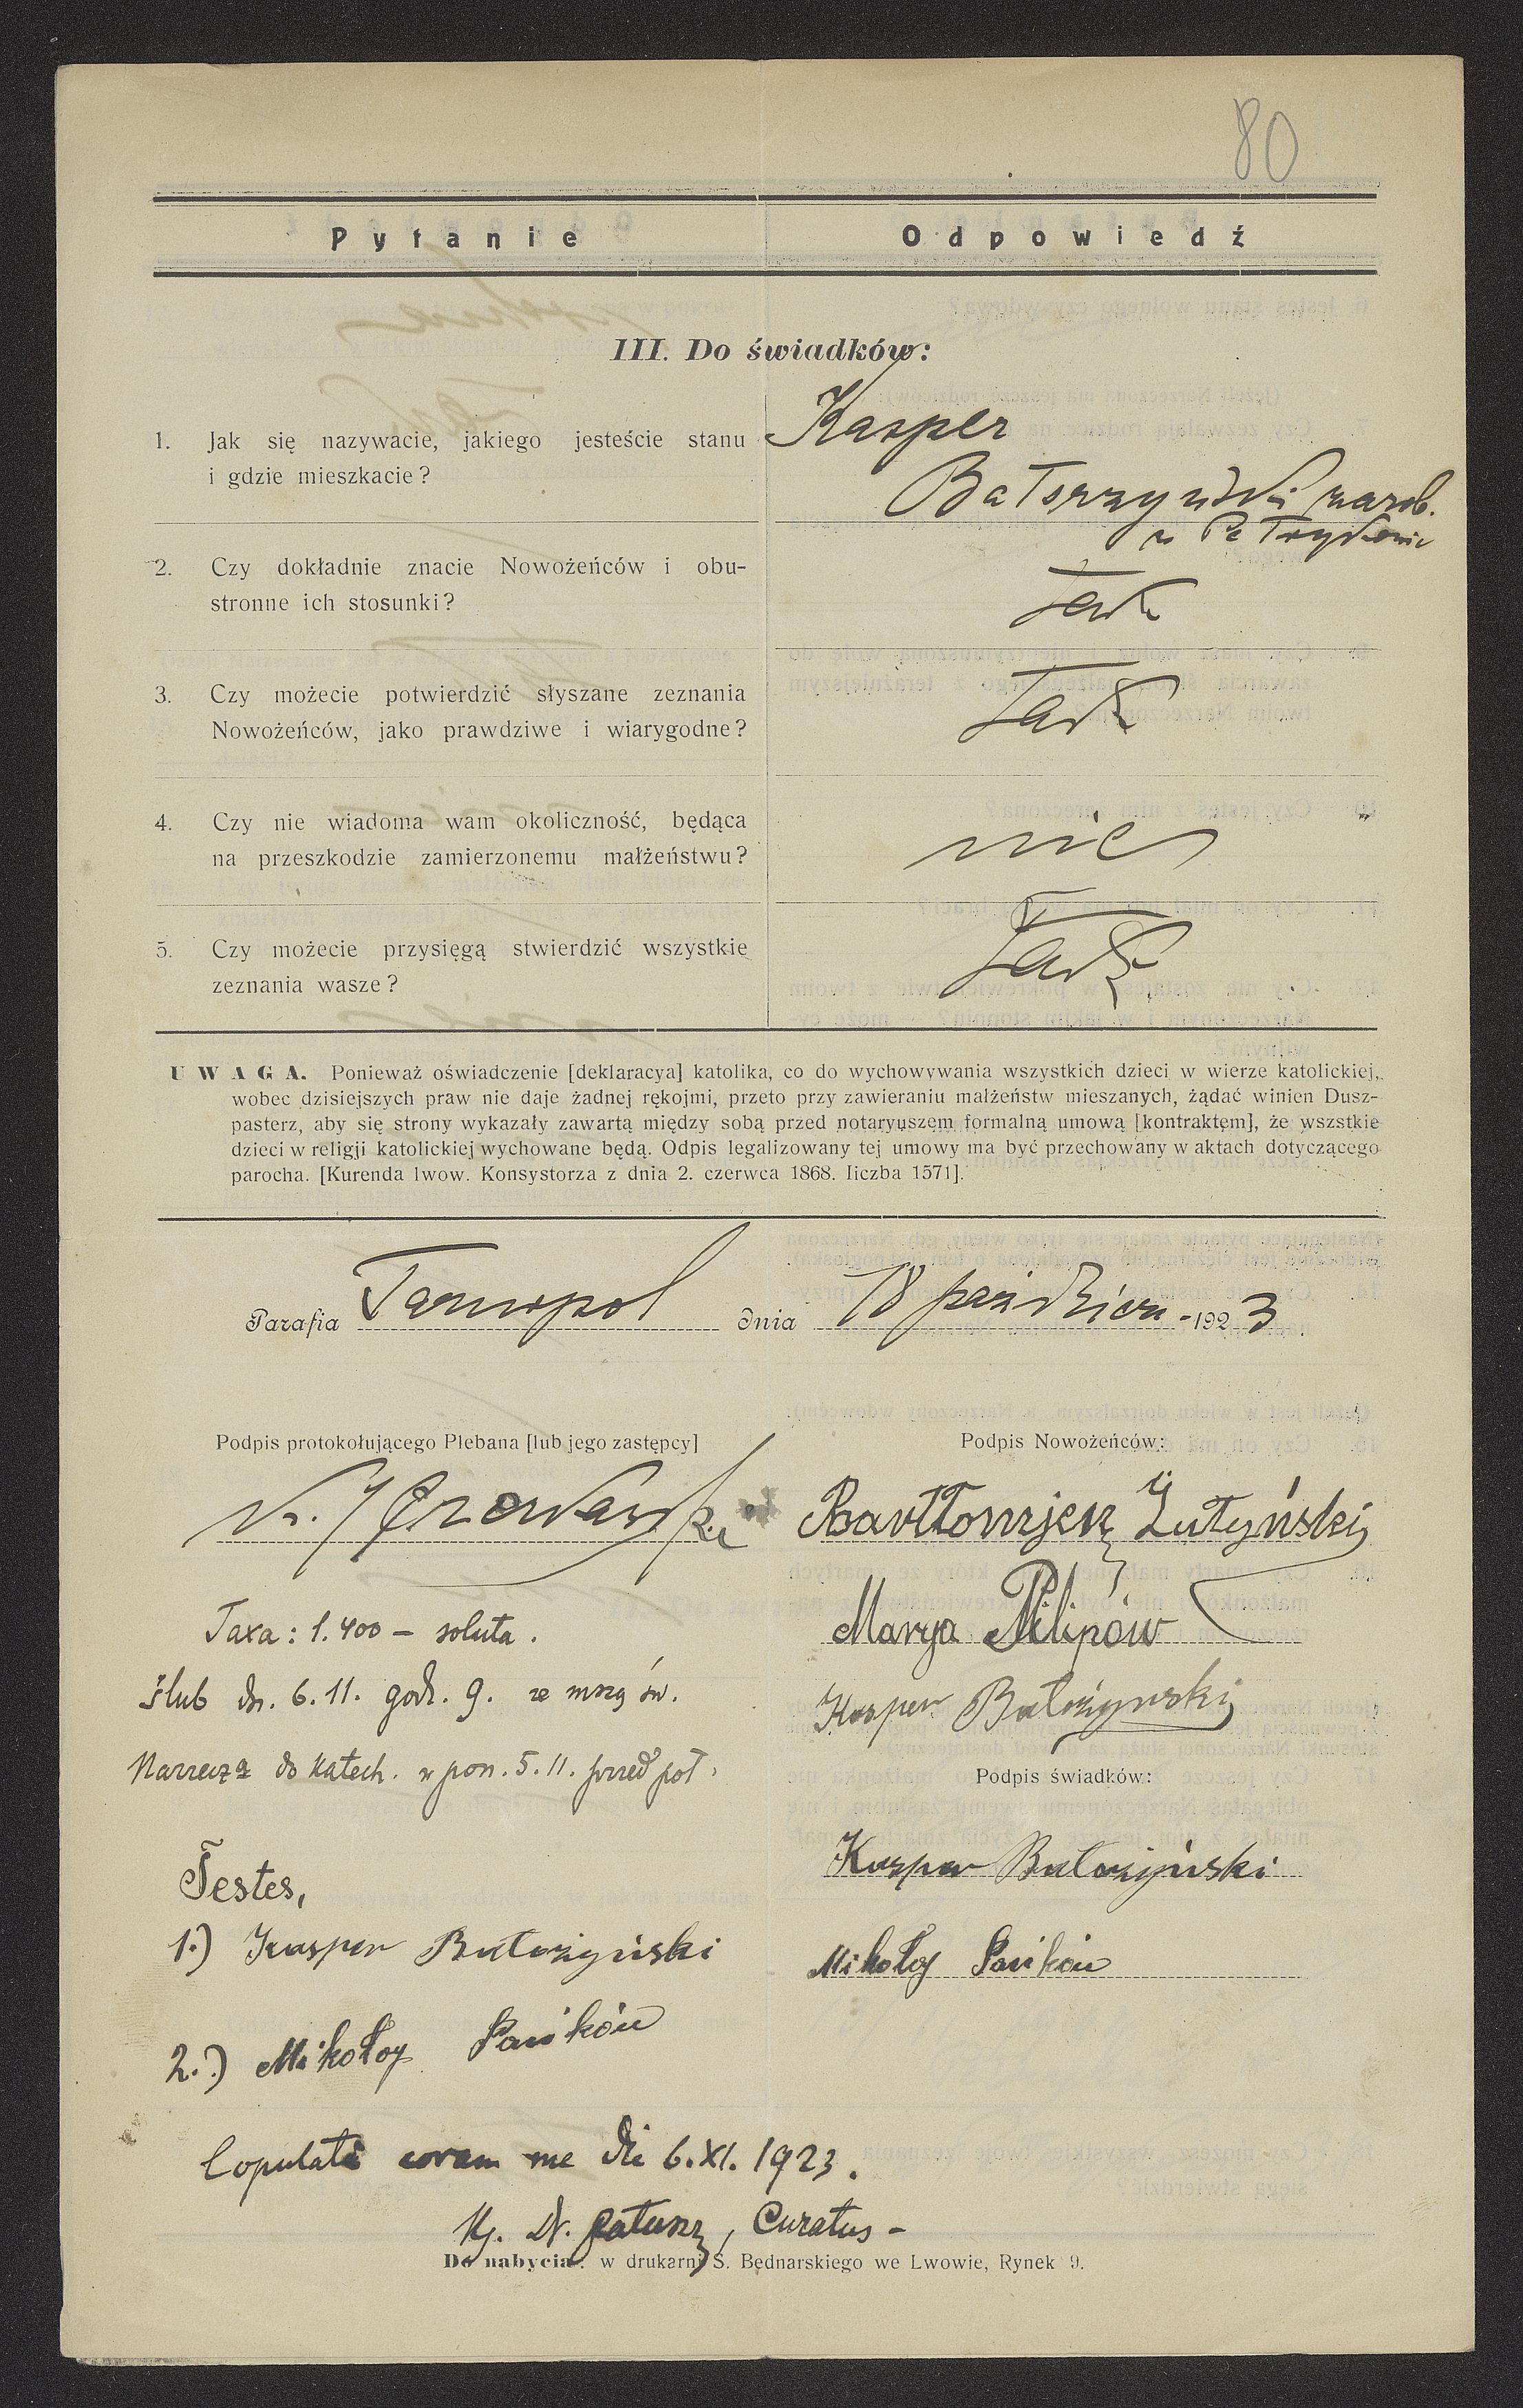 80
Pytanie Odpowiedź
III. Do świadków:
1. Jak się nazywacie, jakiego jesteście stanu
i gdzie mieszkacie?
Kasper
zarob.
2. Czy dokładnie znacie Nowożeńców i obu-
stronne ich stosunki?
Tak
3. Czy możecie potwierdzić słyszane zeznania
Nowożeńców, jako prawdziwe i wiarygodne?
Tak
4. Czy nie wiadoma wam okoliczność, będąca
na przeszkodzie zamierzonemu małżeństwu?
nie
5. Czy możecie przysięgą stwierdzić wszystkie
zeznania wasze?
Tak
UWAGA. Ponieważ oświadczenie [deklaracya] katolika, co do wychowywania wszystkich dzieci w wierze katolickiej,
wobec dzisiejszych praw nie daje żadnej rękojmi, przeto przy zawieraniu małżeństw mieszanych, żądać winien Dusz-
pasterz, aby się strony wykazały zawartą między sobą przed notaryuszem formalną umową [kontraktem], że wszstkie
dzieci w religji katolickiej wychowane będą. Odpis legalizowany tej umowy ma być przechowany w aktach dotyczącego
parocha. [Kurenda lwow. Konsystorza z dnia 2. czerwca 1868. liczba 1571].
Parafia Tarnopol dnia 18 październ - 1923.
Podpis protokołującego Plebana [lub jego zastępcy] Podpis Nowożeńców:
Bartłomjej Żutyński
Marya Pilipów
Taxa: 1.400 – soluta.
ślub dn. 6.11. godz. 9. ze mszą św.
Kasper Bałożynski
do katech. w pon. 5.11. przed poł.
Podpis świadków:
Kasper Bałożyński
Testes,
1.) Kasper Bałożyński
Mikołoj Pańków
2.) Mikołoj Pańków
Copulati coram me die 6.XI.1923.
Curatus -
Do nabycia: w drukarni S. Bednarskiego we Lwowie, Rynek 9.